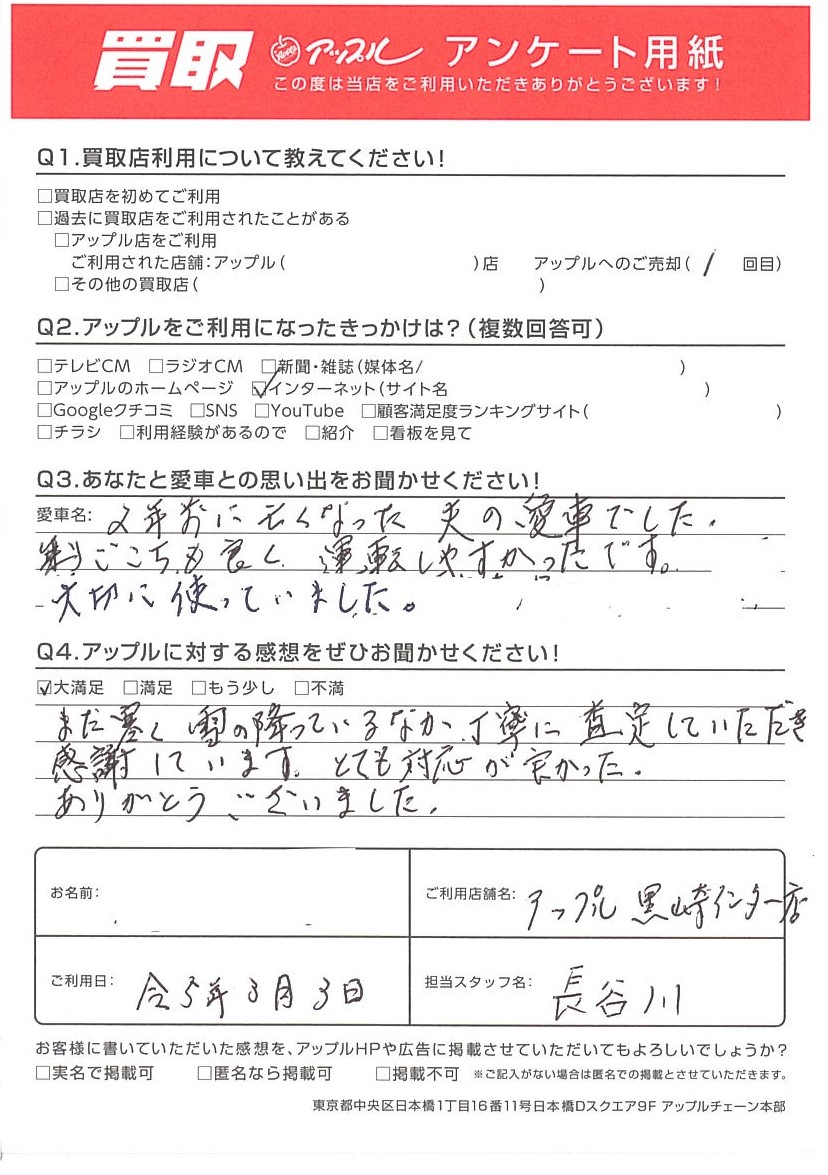 買取 アップル アンケート用紙
この度は当店をご利用いただきありがとうございます！
Q1.買取店利用について教えてください！
□買取店を初めてご利用
□過去に買取店をご利用されたことがある
□アップル店をご利用
ご利用された店舗：アップル（ ）店 アップルへのご売却（ 1 回目）
□その他の買取店（ ）
Q2.アップルをご利用になったきっかけは？（複数回答可）
□テレビCM □ラジオCM □新聞・雑誌（媒体名/ ）
□アップルのホームページ ☑インターネット（サイト名 ）
□Googleクチコミ □SNS □YouTube □顧客満足度ランキングサイト（ ）
□チラシ □利用経験があるので □紹介 □看板を見て
Q3.あなたと愛車との思い出をお聞かせください！
愛車名： 2年前に亡くなった 夫の愛車でした。
ごこちも良く 運転しやすかったです。
大切に使っていました。
Q4.アップルに対する感想をぜひお聞かせください！
☑大満足 □満足 □もう少し □不満
まだ寒く 雪の降っているなか、丁寧に 査定していただき
感謝しています。とても対応が良かった。
ありがとうございました。
お名前：
ご利用店舗名： アップル 黒崎インター店
ご利用日： 令5年3月3日
担当スタッフ名： 長谷川
お客様に書いていただいた感想を、アップルHPや広告に掲載させていただいてもよろしいでしょうか？
□実名で掲載可 □匿名なら掲載可 □掲載不可 ※ご記入がない場合は匿名での掲載とさせていただきます。
東京都中央区日本橋1丁目16番11号日本橋Dスクエア9F アップルチェーン本部